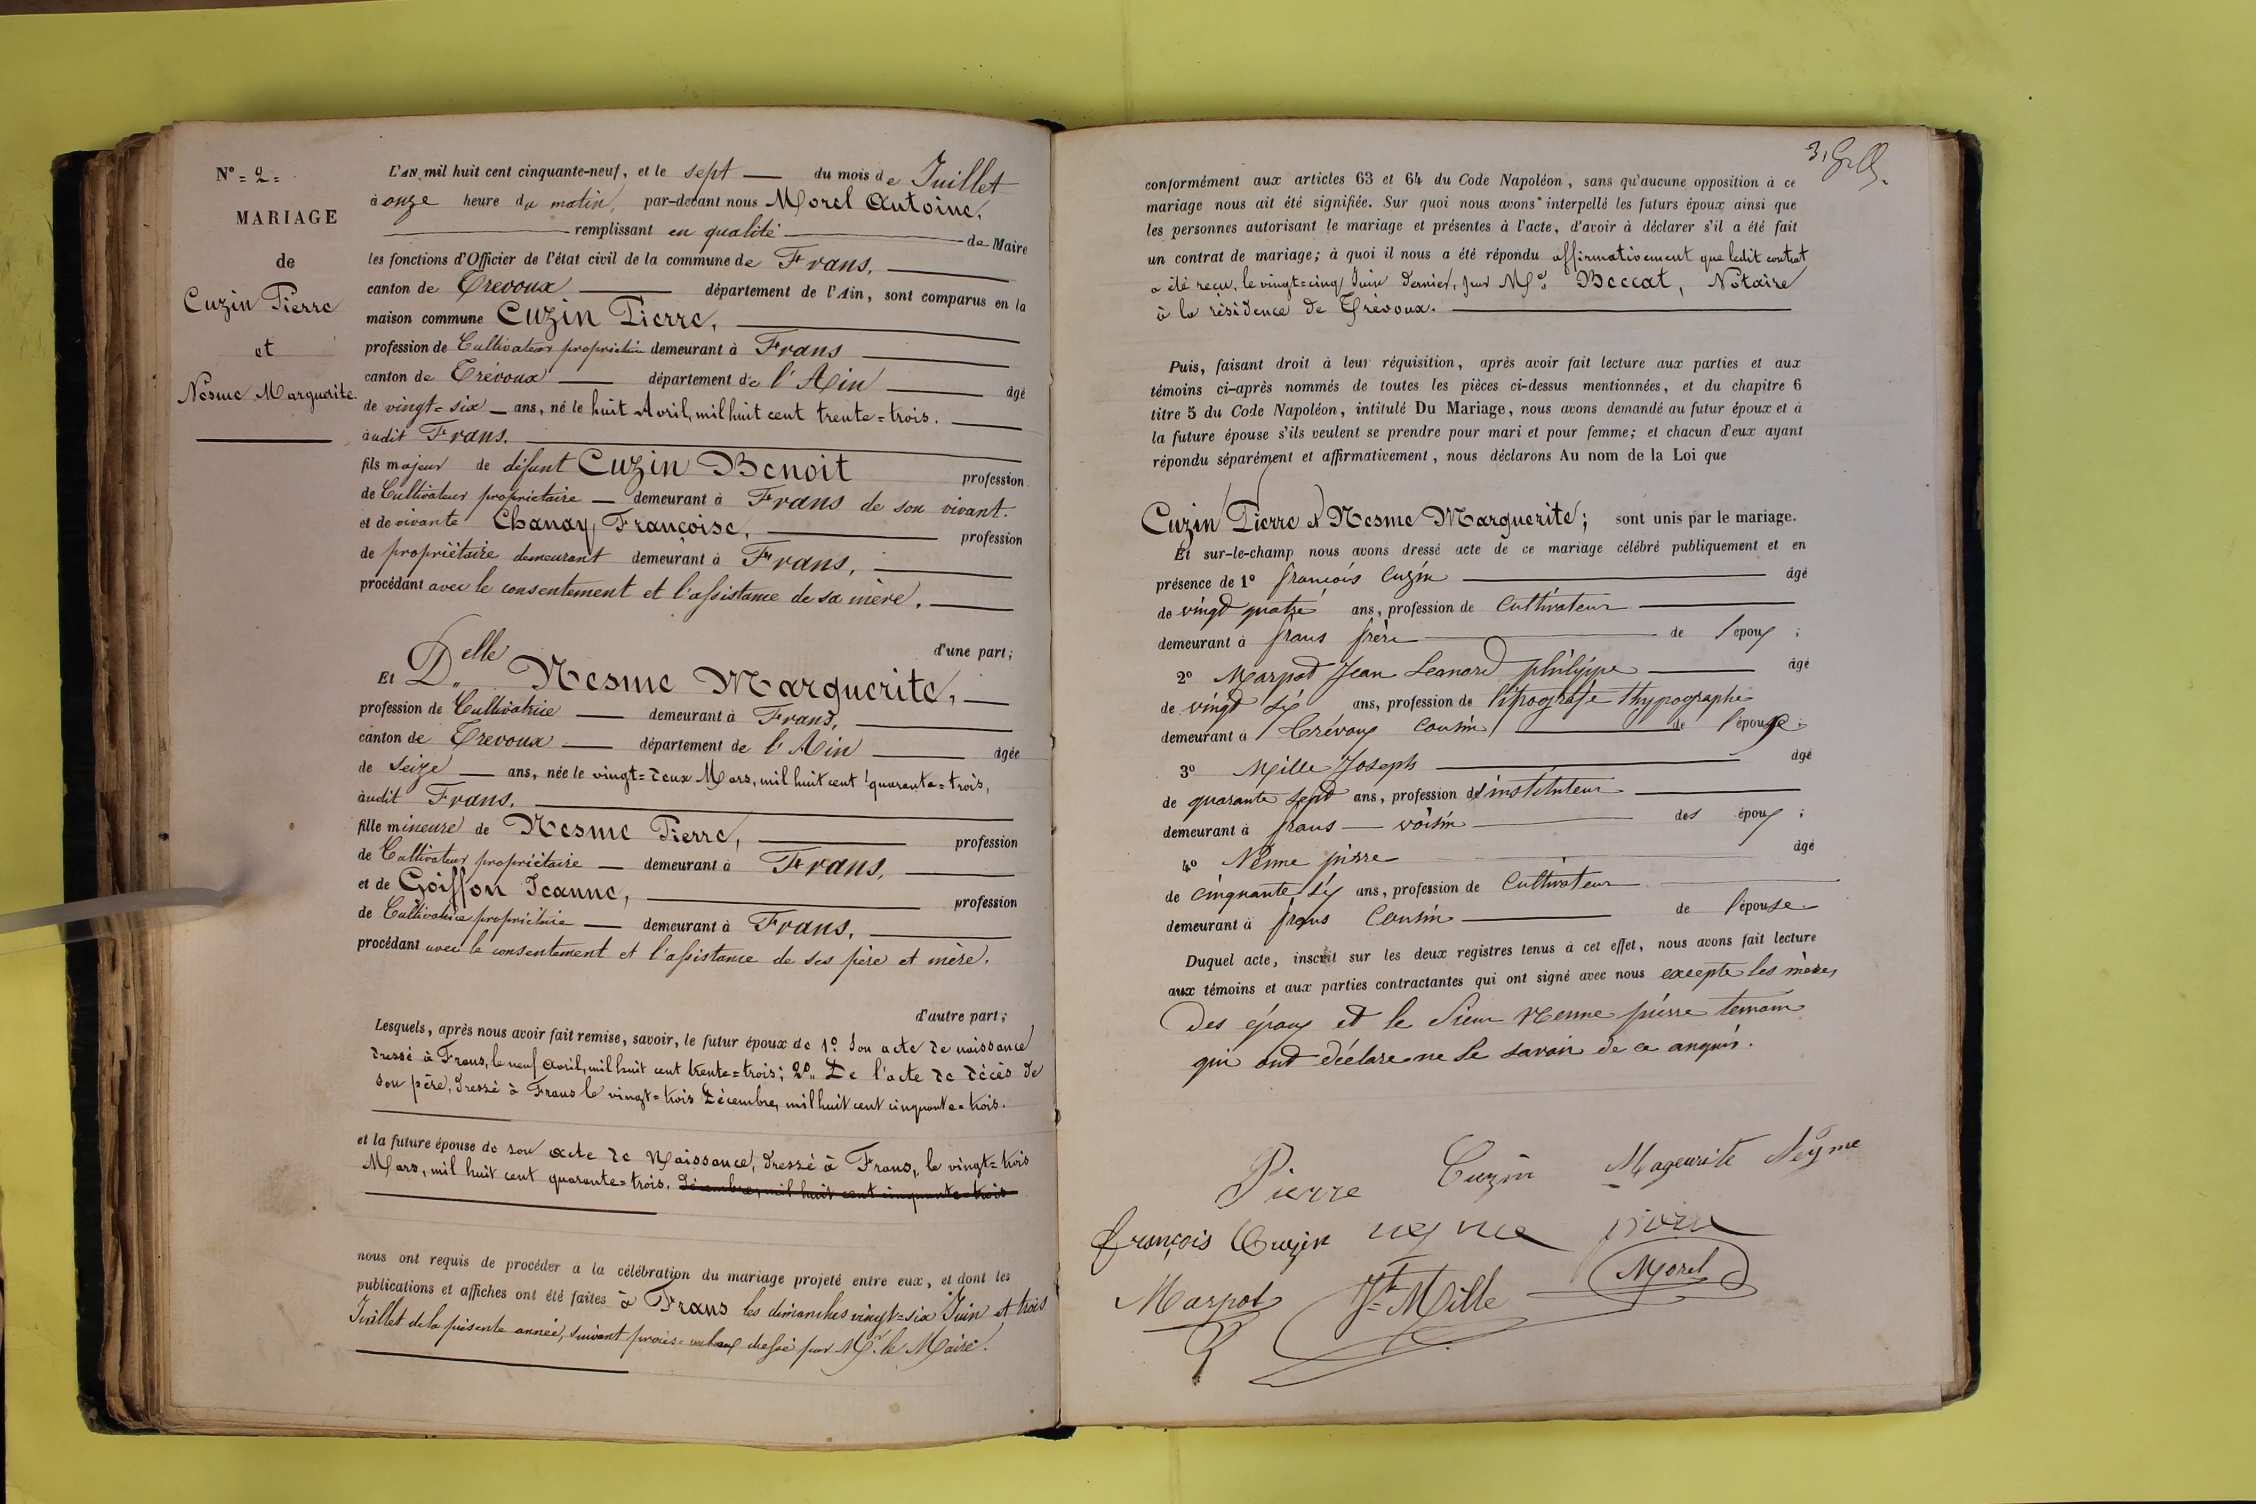 N° = 2 =
MARIAGE
de
Cuzin Pierre
et
Nesme Marguerite
L'AN mil huit cent cinquante-neuf, et le sept du mois de Juillet
à onze heure du matin, par-devant nous Morel Antoine,
remplissant en qualité de Maire
les fonctions d'Officier de l'état civil de la commune de Frans,
canton de Trevoux département de l'Ain, sont comparus en la
maison commune Cuzin Pierre,
profession de Cultivateur propriétaire demeurant à Frans
canton de Trévoux département de l'Ain âgé
de vingt=six ans, né le huit Avril, mil huit cent trente=trois.
audit Frans.
fils majeur de défunt Cuzin Benoit profession
de Cultivateur propriétaire demeurant à Frans de son vivant.
et de vivante Chanay Françoise, profession
de propriétaire demeurant demeurant à Frans,
procédant avec le consentement et l'assistance de sa mère.
d'une part;
Et Delle Nesme Marguerite,
profession de Cultivatrice demeurant à Frans,
canton de Trevoux département de l'Ain âgée
de seize ans, née le vingt=deux Mars, mil huit cent quarante=trois,
audit Frans.
fille mineure de Nesme Pierre, profession
de Cultivateur propriétaire demeurant à Frans,
et de Goiffon Jeanne, profession
de Cultivatrice propriétaire demeurant à Frans,
procédant avec le consentement et l'assistance de ses père et mère.
d'autre part;
Lesquels, après nous avoir fait remise, savoir, le futur époux de 1° Son acte de naissance
dressé à Frans, le neuf avril, mil huit cent trente=trois; 2° De l'acte de décès de
son père, dressé à Frans le vingt=trois Décembre, mil huit cent cinquante=trois.
et la future épouse de son acte de Naissance, dressé à Frans, le vingt=trois
Mars, mil huit cent quarante=trois. décembre, mil huit cent cinquante=trois
nous ont requis de procéder à la célébration du mariage projeté entre eux, et dont les
publications et affiches ont été faites à Frans les dimanches vingt=six Juin et trois
Juillet de la présente année, suivant procès-verbaux dressé par Mr. le Maire.
3,
conformément aux articles 63 et 64 du Code Napoléon, sans qu'aucune opposition à ce
mariage nous ait été signifiée. Sur quoi nous avons interpellé les futurs époux ainsi que
les personnes autorisant le mariage et présentes à l'acte, d'avoir à déclarer s'il a été fait
un contrat de mariage; à quoi il nous a été répondu affirmativement que ledit contrat
a été reçu, le vingt=cinq Juin dernier, par Me. Beccat, Notaire
à la résidence de Trévoux.
Puis, faisant droit à leur réquisition, après avoir fait lecture aux parties et aux
témoins ci-après nommés de toutes les pièces ci-dessus mentionnées, et du chapitre 6
titre 5 du Code Napoléon, intitulé Du Mariage, nous avons demandé au futur époux et à
la future épouse s'ils veulent se prendre pour mari et pour femme; et chacun d'eux ayant
répondu séparément et affirmativement, nous déclarons Au nom de la Loi que
Cuzin Pierre et Nesme Marguerite; sont unis par le mariage.
Et sur-le-champ nous avons dressé acte de ce mariage célébré publiquement et en
présence de 1° francois Cuzin âgé
de vingt quatre ans, profession de Cultivateur
demeurant à frans frère de l'époux ;
2° Marpot Jean Leonard philippe âgé
de vingt six ans, profession de thypographe
demeurant à Trévoux cousin de l'épouse ;
3° Mille Joseph âgé
de quarante sept ans, profession d'instituteur
demeurant à frans voisin des époux ;
4° Nesme pierre âgé
de cinquante six ans, profession de Cultivateur
demeurant à frans Cousin de l'épouse
Duquel acte, inscrit sur les deux registres tenus à cet effet, nous avons fait lecture
aux témoins et aux parties contractantes qui ont signé avec nous excepté les mères
des époux et le Sieur Nesme pierre temoin
qui ont déclare ne le savoir de ce anquis.
Pierre Cuzin Mageurite Neyme
françois Cuzin neyme pierre
Morel
Marpot Jh Mille